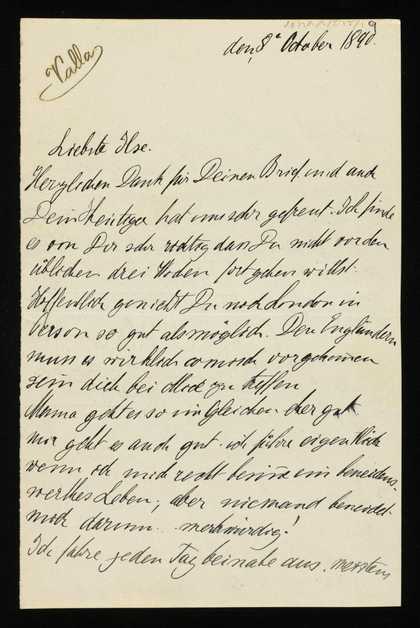 Valla
den 8ᵗ October 1890.
Liebste Ilse.
Herzlichen Dank für Deinen Brief und auch
Dein heutiger hat uns sehr gefreut. Ich finde
es von Dir sehr richtig dass Du nicht vor den
üblichen drei Wochen fortgehen willst.
Hoffentlich geniesst Du noch London in
so gut als möglich. Den Engländern
muss es wirklich comisch vorgekommen
sein dich bei zu treffen
Mama geht es so im Gleichen eher gut
mir geht es auch gut. ich führe eigentlich
wenn ich mich recht besinne ein beneidens-
werthes Leben, aber niemand beneidet
mich darum. merkwürdig!
Ich fahre jeden Tag beinahe aus. meistens